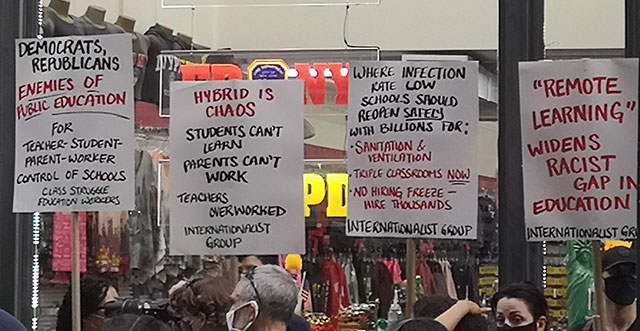 DEMOCRATS,
REPUBLICANS
ENEMIES OF
PUBLIC EDUCATION
FOR
TEACHER-STUDENT-
PARENT-WORKER
CONTROL OF SCHOOLS
CLASS STRUGGLE
EDUCATION WORKERS
HYBRID IS
CHAOS
STUDENTS CAN'T
LEARN
PARENTS CAN'T
WORK
TEACHERS
OVERWORKED
INTERNATIONALIST
GROUP
WHERE INFECTION
RATE LOW
SCHOOLS SHOULD
REOPEN SAFELY
WITH BILLIONS FOR:
• SANITATION &
VENTILATION
• TRIPLE CLASSROOMS NOW
• NO HIRING FREEZE -
HIRE THOUSANDS
INTERNATIONALIST GROUP
"REMOTE
LEARNING"
WIDENS
RACIST
GAP IN
EDUCATION
INTERNATIONALIST GR
NY
PD